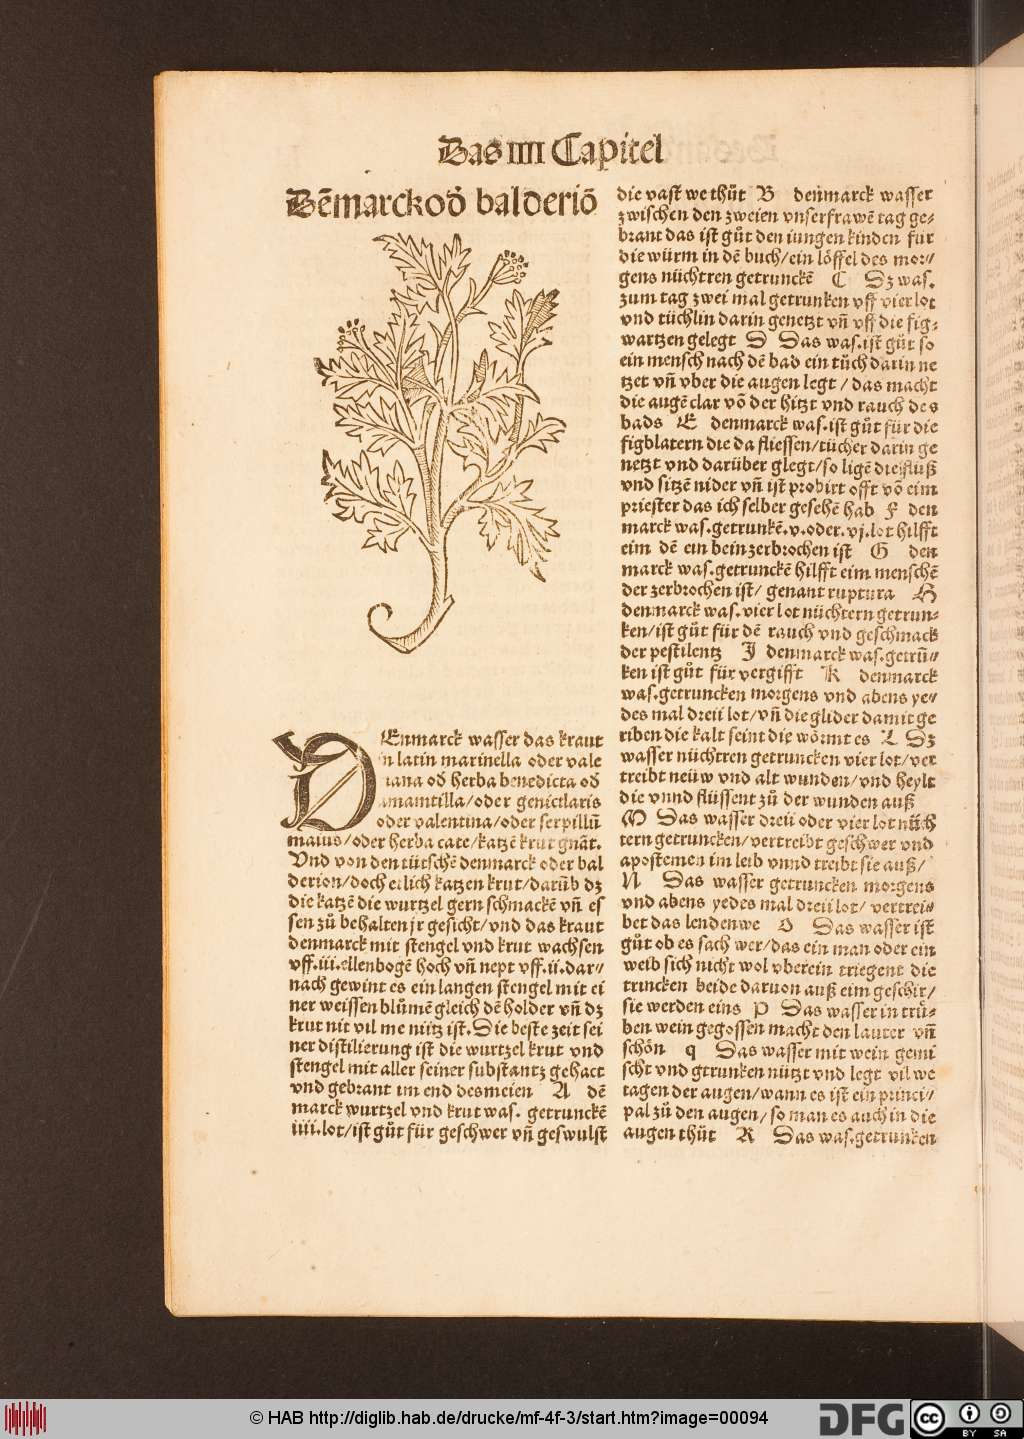 Das IIII Capitel
Dēmarck od̕ balderiō
DEnmarck wasser das kraut
in latin marinella oder vale
riana od̕ herba benedicta od̕
amantilla/oder genicularis
oder valentina/oder serpillū
maius/oder herba cate/katzē krut gnāt.
Vnd von den tütschē denmarck oder bal
derion/doch etlich katzen krut/darūb dz
die katzē die wurtzel gern schmackē vn̄ es
sen zů behalten jr gesicht/vnd das kraut
denmarck mit stengel vnd krut wachsen
vff.iii.ellenbogē hoch vn̄ nept vff.ii.dar//
nach gewint es ein langen stengel mit ei
ner weissen blůmē gleich dē holder vn̄ dz
krut nit vil me nütz ist. Die beste zeit sei
ner distilierung ist die wurtzel krut vnd
stengel mit aller seiner substantz gehact
vnd gebrant im end des meien A dē
marck wurtzel vnd krut was. getrunckē
iiii.lot/ist gůt für geschwer vn̄ geswulst
die vast we thůt B denmarck wasser
zwischen den zweien vnser frawē tag ge-
brant das ist gůt den iungen kinden für
die würm in dē buch/ein löffel des mor//
gens nüchtren getrunckē C Dz was.
zum tag zwei mal getrunken vff vier lot
vnd tüchlin darin genetzt vn̄ vff die fig-
wartzen gelegt D Das was.ist gůt so
ein mensch nach dē bad ein tůch darin ne
tzet vn̄ vber die augen legt/das macht
die augē clar vō der hitzt vnd rauch des
bads E denmarck was.ist gůt für die
figblatern die da fliessen/tücher darin ge
netzt vnd darüber glegt/so ligē die flüß
vnd sitzē nider vn̄ ist probirt offt vō eim
priester das ich selber gesehē hab F den
marck was.getrunkē.v.oder.vj.lot hilfft
eim dē ein bein zerbrochen ist G den
marck was.getrunckē hilfft eim menschē
der zerbrochen ist/ genant ruptura H
denmarck was.vier lot nüchtern getrun-
ken/ist gůt für dē rauch vnd geschmack
der pestilentz I denmarck was.getrū//
ken ist gůt für vergifft K denmarck
was.getruncken morgens vnd abens ye//
des mal dreii lot/vn̄ die glider damit ge
riben die kalt seint die wörmt es L Dz
wasser nüchtren getruncken vier lot/ver
treibt neüw vnd alt wunden/vnd heylt
die vnnd flüssent zů der wunden auß
M Das wasser dreii oder vier lot nüch
tern getruncken/vertreibt geschwer vnd
apostemen im leib vnnd treibt sie auß/
N Das wasser getruncken morgens
vnd abens yedes mal dreii lot/ vertrei-
bet das lendenwe O Das wasser ist
gůt ob es sach wer/das ein man oder ein
weib sich nicht wol vberein triegent die
trincken beide daruon auß eim geschir/
sie werden eins P Das wasser in trů-
ben wein gegossen macht den lauter vn̄
schön q Das wasser mit wein gemi
scht vnd gtrunken nützt vnd legt vil we
tagen der augen/wann es ist ein princi//
pal zů den augen/so man es auch in die
augen thůt R Das was.getrunken
© HAB http://diglib.hab.de/drucke/mf-4f-3/start.htm?image=00094
DFG
cc
BY SA